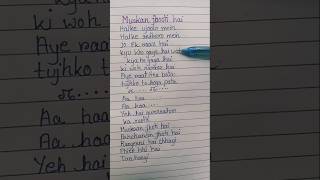 Muskan jhooti hai
Halke ujaale mein
Halke andhere mein
Jo Ek raaz hai
Kyu kho gaya hai woh
kya ho gaya hai
ki woh naaraz hai
Aye raat itna bata
tujhko to hoga pata
Aa haa
Aa haa ....
Aa haa
Yeh hai gunaahon
ka raasta
Muskaan jhoti hai
Pehchaan jhoti hai
Rangeeni hai chhayi
Phir bhi hai
Tanhayi